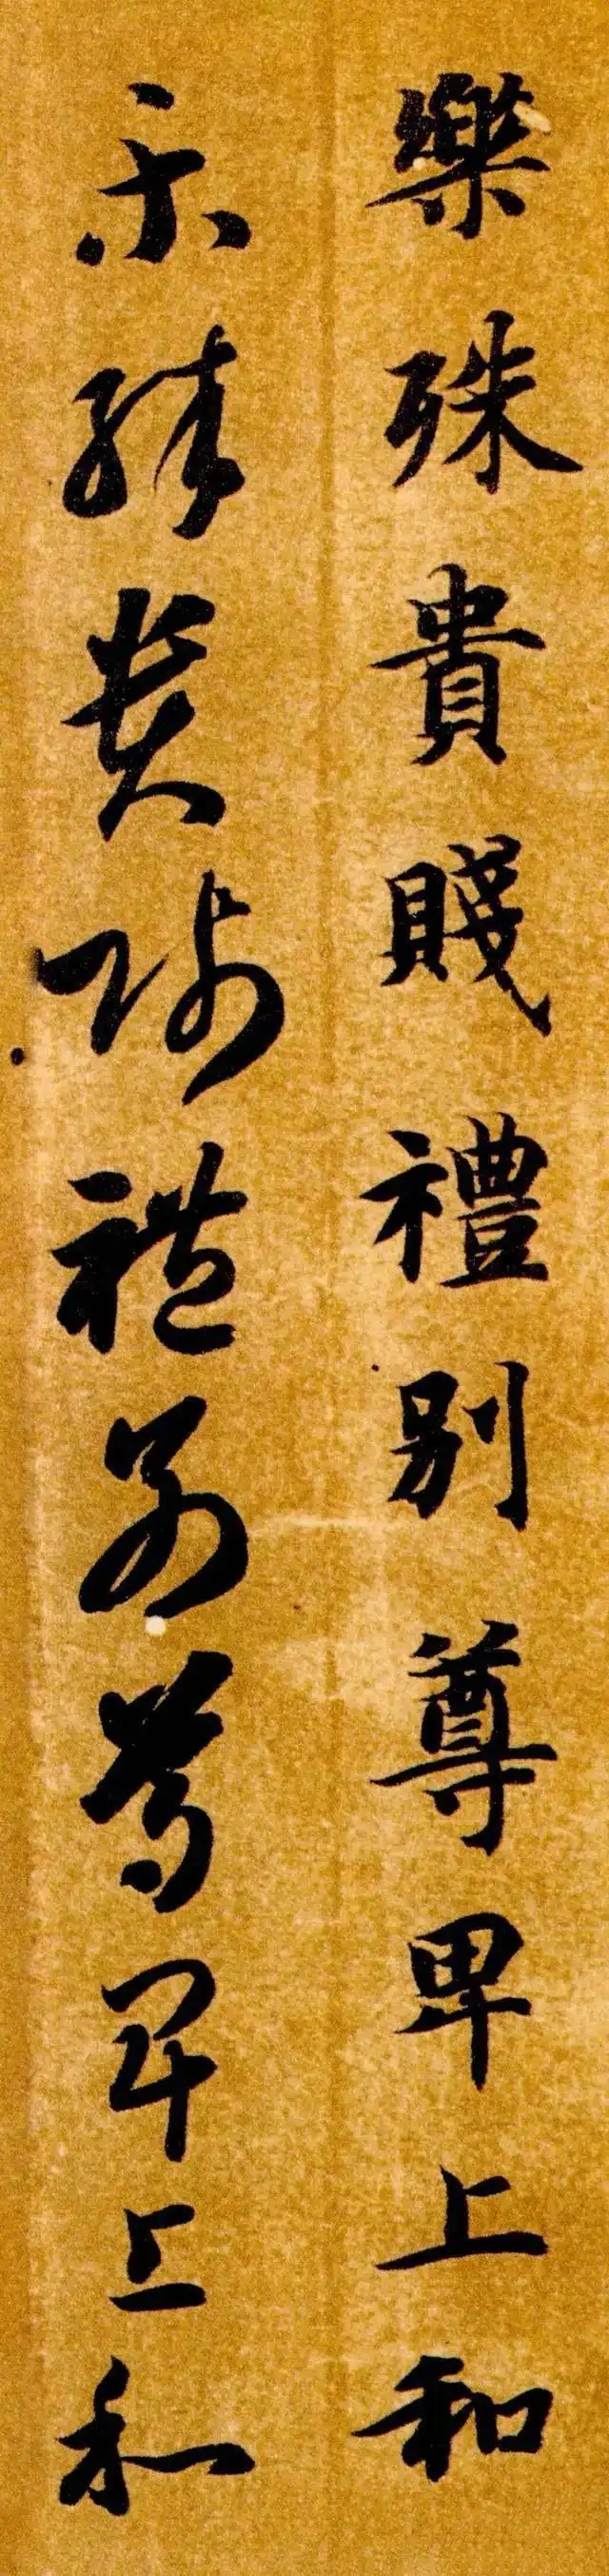 樂殊貴賤禮別尊卑上和
樂殊貴賤禮別尊卑上和